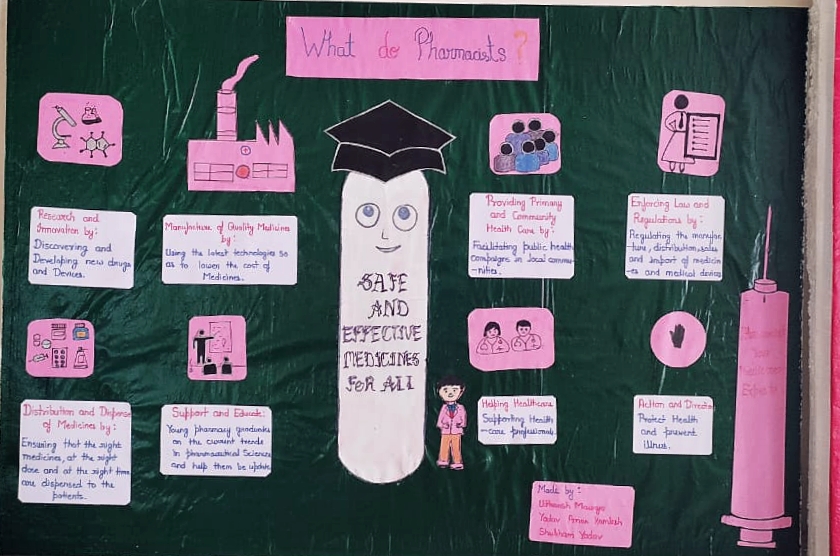 What do Pharmacists ?
Research and
Innovation by:
Discovering and
Developing new drugs
and Devices.
Manufacture of Quality Medicines
by:
Using the latest technologies so
as to lower the cost of
Medicines.
SAFE
AND
EFFECTIVE
MEDICINES
FOR ALL
Providing Primary
and Community
Health Care by:
Facilitating public health
campaigns in local commu
-nities.
Enforcing Law and
Regulations by:
Regulating the manufac
-ture, distribution, sales
and import of medicin
-es and medical devices
Distribution and Dispense
of Medicines by:
Ensuring that the right
medicines, at the right
dose and at the right time
are dispensed to the
patients.
Support and Educate:
Young pharmacy graduates
on the current trends
In pharmaceutical Sciences
and help them be update
Helping Healthcare
Supporting Health
-care professionals
Action and Direction
Protect Health
and prevent
illness.
Made by:
Maurya
Yadav Aman Kamlesh
Shubham Yadav